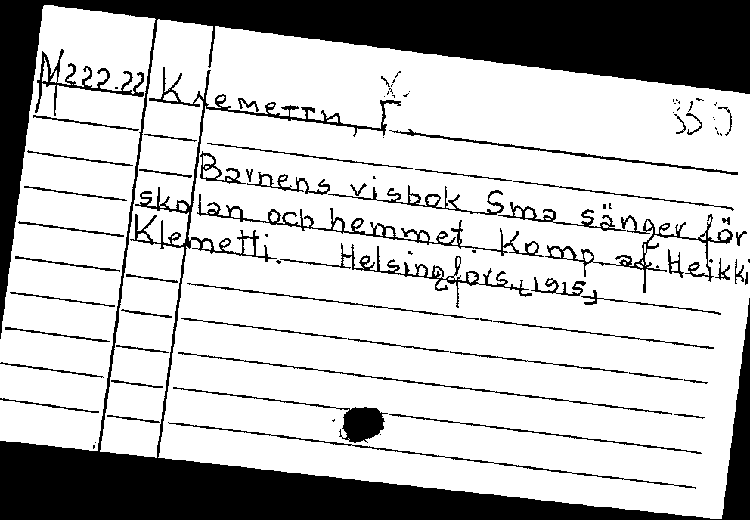 М222.22 Клеметти, Г. X. 350
Barnens visbok Sma sänger för
skolan och hemmet. Komp. af. Heikki
Klemetti. Helsingfors, [1915]